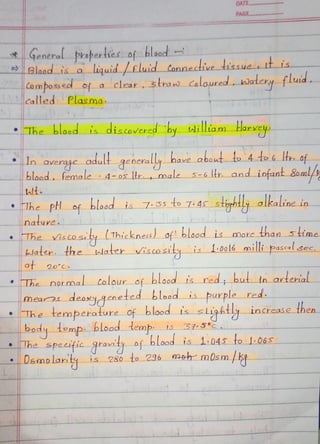 DATE
PAGE
* General properties of blood -:
⇒ Blood is a liquid / Fluid Connective tissue. It is
Compossed of a clear, straw Coloured, watery fluid.
called Plasma.
• The blood is discovered by William Harvey
• In average adult generally have about to 4 to 6 ltr. of
blood. female - 4-05 ltr., male 5-6 ltr. and infant 80ml/kg
Wt.
• The pH of blood is 7.35 to 7.45 slightly alkaline in
nature.
• The viscosity (Thickness) of blood is more than 5 time
water. the water viscosity is 1.0016 milli pascal.sec.
at 20°c.
• The normal colour of blood is red; but In arterial
means deoxygeneted blood is purple red.
• The temperature of blood is slightly increase then
body temp. blood temp. is 37.5°c.
• The specific gravity of blood is 1.045 to 1.065
• Osmolarity is 280 to 296 mOsm/kg